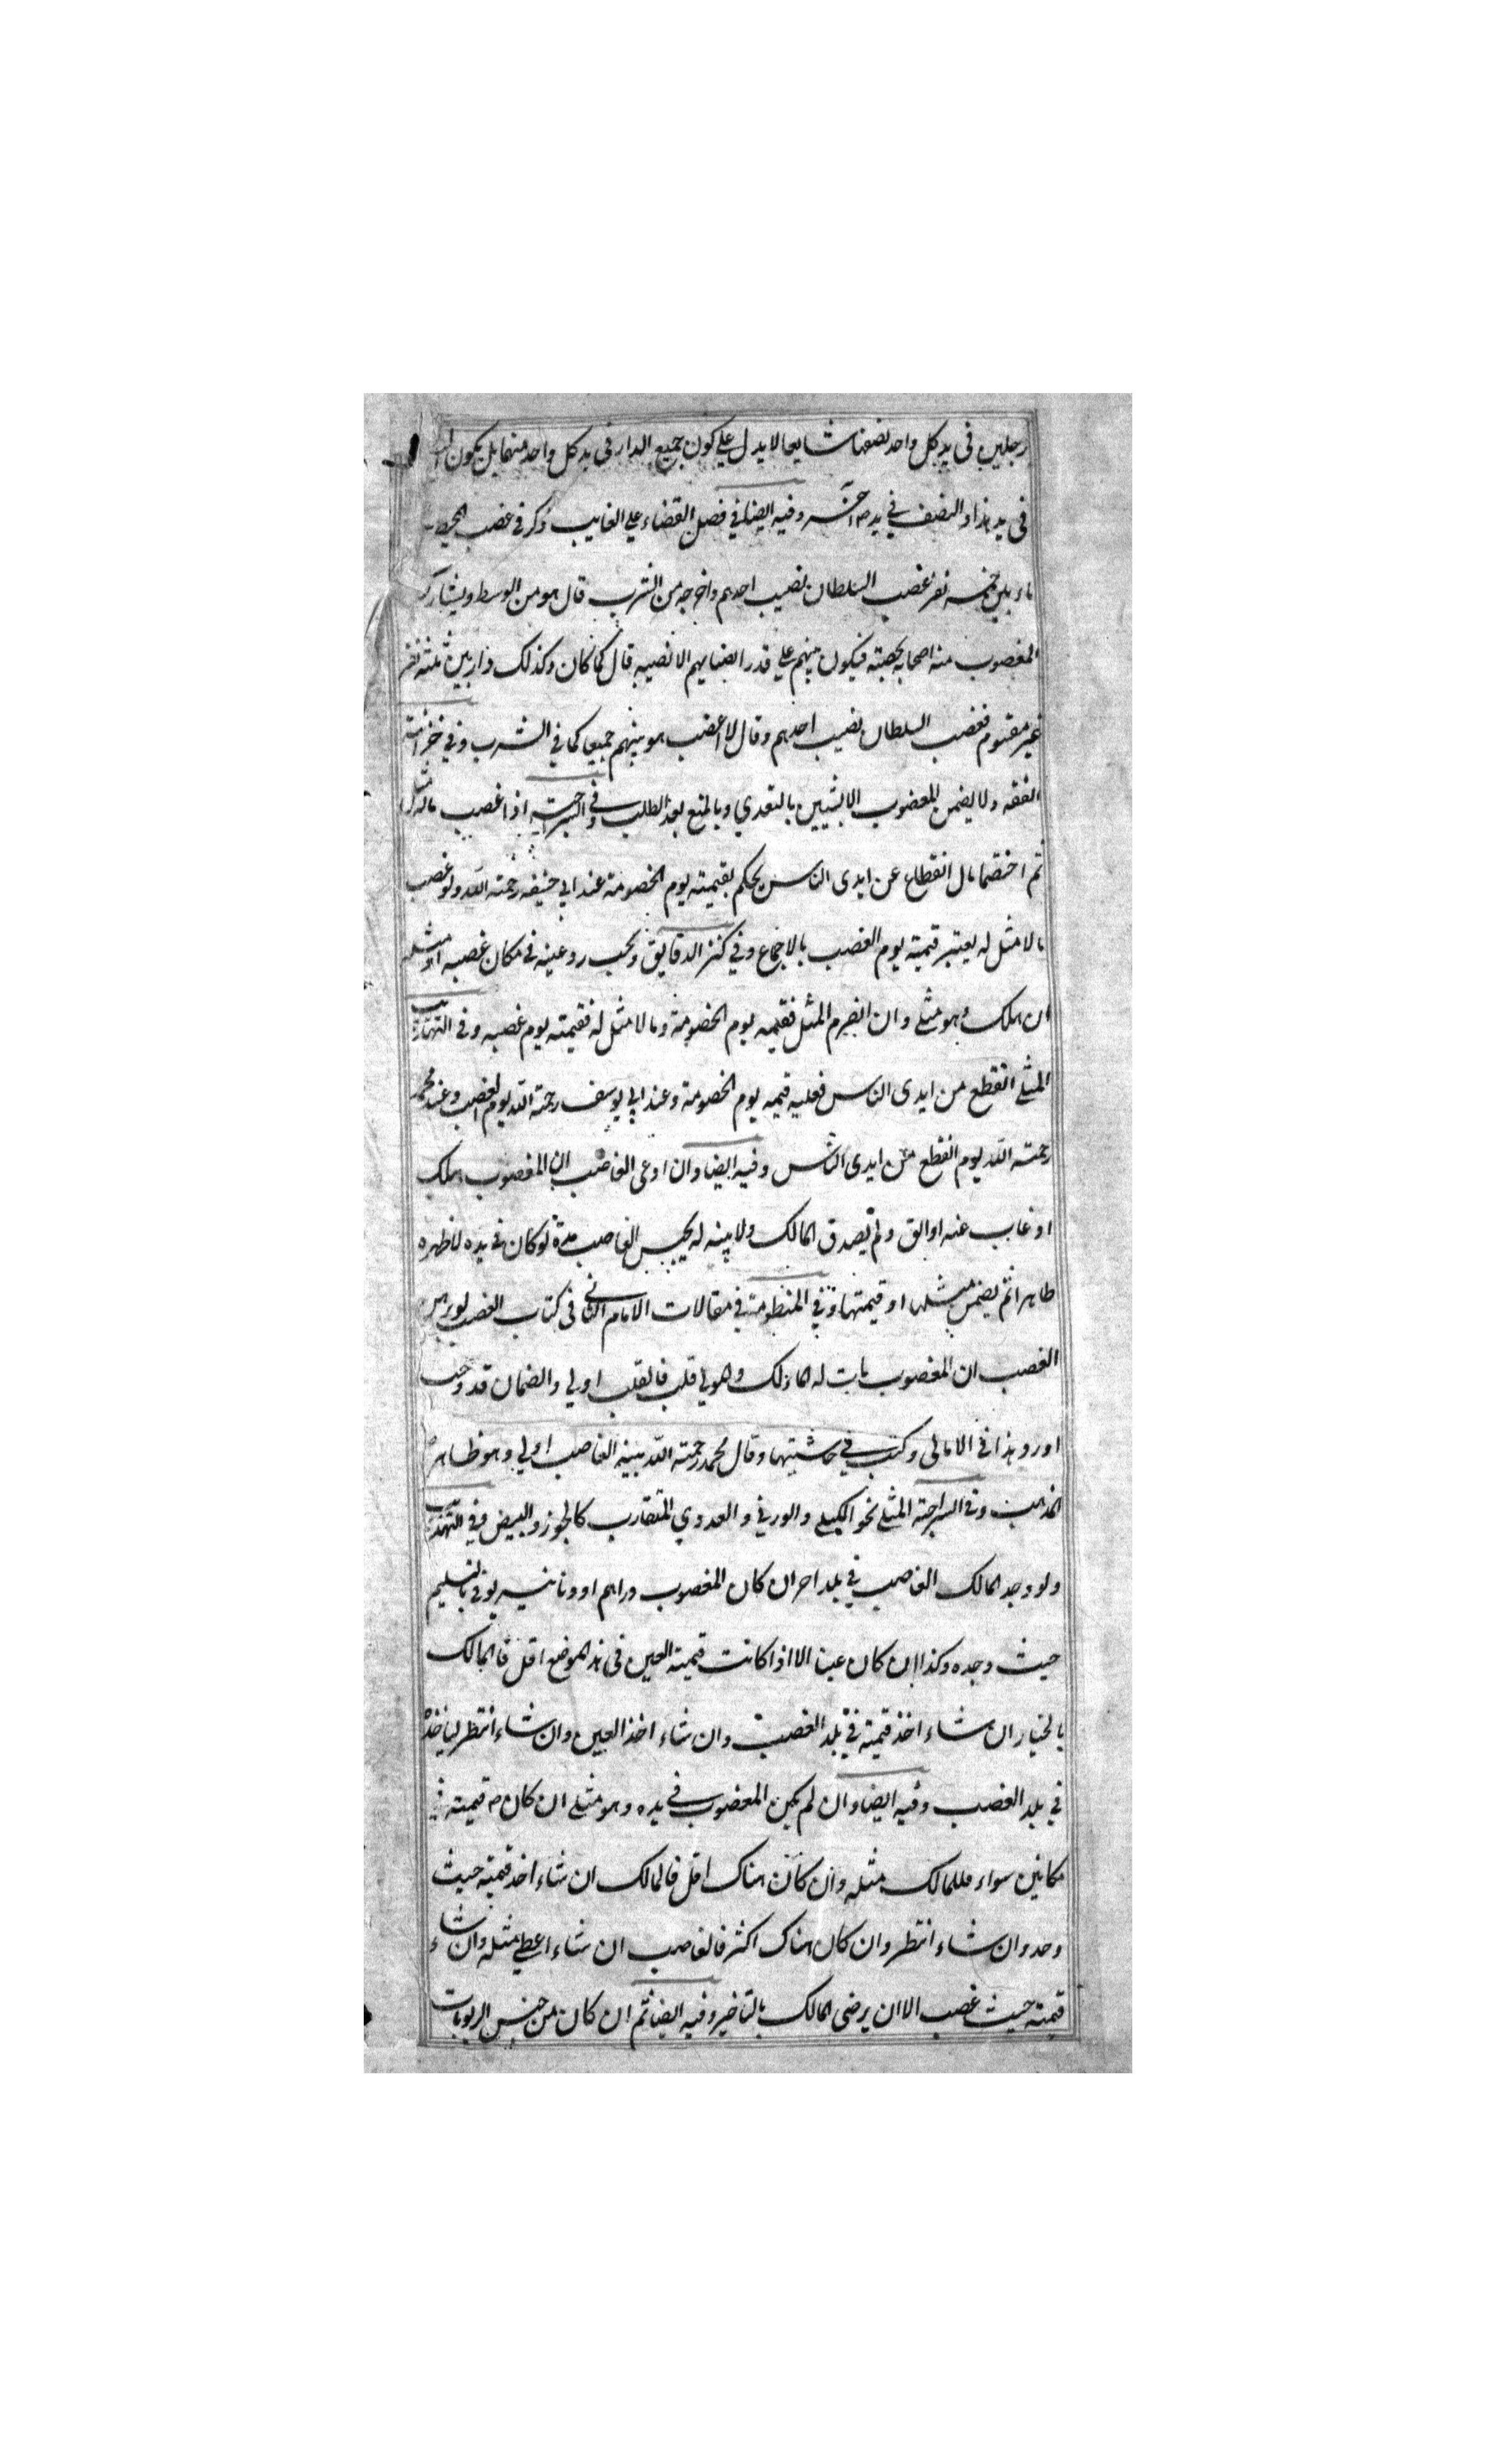 رجلين في يد كل واحد نصفها شايعا لا يدل علي كون جميع الدار في يد كل واحد منهما بل يكون
في يد هذا والنصف في يد وفيه ايضا في فصل القضاء علي الغايب ذكر في غصب
ماء بين خمسة نفر غصب السلطان نصيب احدهم واخرجه من الشرب قال هو من الوسط ويشارك
المغصوب منه اصحابه بحصته فيكون بينهم علي قدر انصبايهم الانصبه قال كما كان وكذلك دار بين ثلثة نفر
غير مقسوم فغصب السلطان نصيب احدهم وقال لا اغصب هو بينهم جميعا كما في الشرب وفي خزانة
الفقه ولا يضمن المغصوب الا بشيين بالتعدي وبالمنع بعد الطلب وفي السراجية اذا غصب ماله مثل
ثم اختصما مال انقطاع عن ايدى الناس يحكم بقيمته يوم الخصومة عند ابي حنيفه رحمته الله ولو غصب
ما لا مثل له يعتبر قيمته يوم الغصب بالاجماع وفي كنز الدقايق ويجب رد عينه في مكان غصبه او مثله
ان هلك وهو مثلي وان انصرم المثل فقيمه يوم الخصومة وما لا مثل له فقيمته يوم غصبه وفي التهذيب
المثلي انقطع من ايدى الناس فعليه قيمه يوم الخصومة وعند ابي يوسف رحمته الله يوم الغصب وعند محمد
رحمته الله يوم انقطع من ايدى الناس وفيه ايضا وان ادعى الغاصب ان المغصوب هلك
او غاب عنه او ابق ولم يصدق المالك ولا بينه له يحبس الغاصب مدة لو كان في يده لاظهره
ظاهرا ثم يضمن مثلها او قيمتها وفي المنظومة في مقالات الامام الثاني في كتاب الغصب لو برهن
الغصب ان المغصوب مات له المالك وهو لي قلب فالقلب اولي والضمان قد وجب
اورد هذا في الامالى وكتب في حاشيتها وقال محمد رحمته الله بينه الغاصب اولي وهو ظاهر
المذهب وفي السراجية المثلي نحو الكيلي والوزني والعددي المتقارب كالجوز والبيض وفي التهذيب
ولو وجد المالك الغاصب في بلد اخر ان كان المغصوب دراهم او دنانير يوفي بالتسليم
حيث وجده وكذا ان كان عينا الا اذا كانت قيمته العين في هذ الموضع اقل فالمالك
بالخيار ان شاء اخذ قيمته في بلد الغصب وان شاء اخذ العين وان شاء انتظر لياخذه
في بلد الغصب وفيه ايضا وان لم يكن المغصوب في يده وهو مثلي ان كان قيمته في
مكانين سواء فللمالك مثله وان كان هناك اقل فالمالك ان شاء اخذ قيمته حيث
وجد وان شاء انتظر وان كان هناك اكثر فالغاصب ان شاء اعطي مثله وان شاء
قيمته حيث غصب الا ان يرضى المالك بالتاخير وفيه ايضا ثم ان كان من جنس الربويات